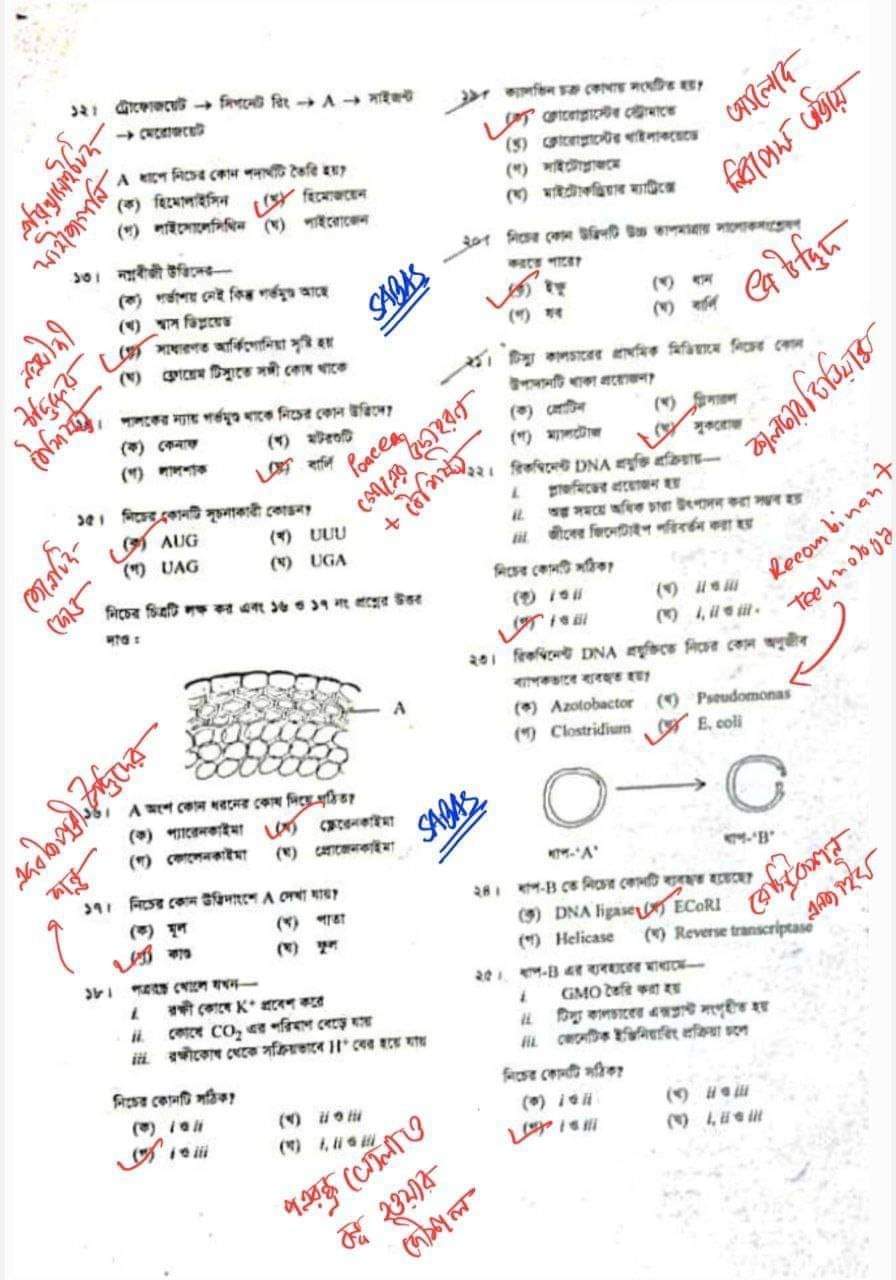 ১২। ট্রোফোজয়েট → সিগনেট রিং → A → সাইজন্ট
→ মেরোজয়েট
A ধাপে নিচের কোন পদার্থটি তৈরি হয়?
(ক) হিমোলাইসিন (খ) হিমোজয়েন
(গ) লাইসোলেসিথিন (ঘ) পাইরোজেন
১৩। নগ্নবীজী উদ্ভিদের—
(ক) গর্ভাশয় নেই কিন্তু গর্ভমুণ্ড আছে
(খ) শ্বাস ডিপ্লয়েড
(গ) সাধারণত আর্কিগোনিয়া সৃষ্টি হয়
(ঘ) ফ্লোয়েম টিস্যুতে সঙ্গী কোষ থাকে
SABAS
নগ্নবীজী
উদ্ভিদের
বৈশিষ্ট্য
১৪। পালকের ন্যায় গর্ভমুণ্ড থাকে নিচের কোন উদ্ভিদে?
(ক) কেনাফ (খ) মটরশুটি
(গ) লালশাক (ঘ) বার্লি
Poaceae
গোত্রের উদাহরণ
+ বৈশিষ্ট্য
১৫। নিচের কোনটি সূচনাকারী কোডন?
(ক) AUG (খ) UUU
(গ) UAG (ঘ) UGA
জেনেটিক
কোড
নিচের চিত্রটি লক্ষ কর এবং ১৬ ও ১৭ নং প্রশ্নের উত্তর
দাও :
A
১৬। A অংশে কোন ধরনের কোষ দিয়ে গঠিত?
(ক) প্যারেনকাইমা (খ) স্ক্লেরেনকাইমা
(গ) কোলেনকাইমা (ঘ) প্রোজেনকাইমা
SABAS
একবীজপত্রী উদ্ভিদের
কান্ড
১৭। নিচের কোন উদ্ভিদাংশে A দেখা যায়?
(ক) মূল (খ) পাতা
(গ) কাণ্ড (ঘ) ফুল
১৮। পত্ররন্ধ্র খোলে যখন—
i. রক্ষী কোষে K⁺ প্রবেশ করে
ii. কোষে CO₂ এর পরিমাণ বেড়ে যায়
iii. রক্ষীকোষ থেকে সক্রিয়ভাবে H⁺ বের হয়ে যায়
নিচের কোনটি সঠিক?
(ক) i ও ii (খ) ii ও iii
(গ) i ও iii (ঘ) i, ii ও iii
পত্ররন্ধ্র খোলা ও
বন্ধ হওয়ার
কৌশল
১৯। ক্যালভিন চক্র কোথায় সংঘটিত হয়?
(ক) ক্লোরোপ্লাস্টের স্ট্রোমাতে
(খ) ক্লোরোপ্লাস্টের থাইলাকয়েডে
(গ) সাইটোপ্লাজমে
(ঘ) মাইটোকন্ড্রিয়ার ম্যাট্রিক্সে
আলোক
নিরপেক্ষ অধ্যায়
২০। নিচের কোন উদ্ভিদটি উচ্চ তাপমাত্রায় সালোকসংশ্লেষণ
করতে পারে?
(ক) ইক্ষু (খ) ধান
(গ) যব (ঘ) বার্লি
২১। টিস্যু কালচারের প্রাথমিক মিডিয়ামে নিচের কোন
উপাদানটি থাকা প্রয়োজন?
(ক) প্রোটিন (খ) গ্লিসারল
(গ) ম্যালটোজ (ঘ) সুকরোজ
২২। রিকম্বিনেন্ট DNA প্রযুক্তি প্রক্রিয়ায়—
i. প্লাজমিডের প্রয়োজন হয়
ii. অল্প সময়ে অধিক চারা উৎপাদন করা সম্ভব হয়
iii. জীবের জিনোটাইপ পরিবর্তন করা হয়
নিচের কোনটি সঠিক?
(ক) i ও ii (খ) ii ও iii
(গ) i ও iii (ঘ) i, ii ও iii
Recombinant
Technology
২৩। রিকম্বিনেন্ট DNA প্রযুক্তিতে নিচের কোন অণুজীব
ব্যাপকভাবে ব্যবহৃত হয়?
(ক) Azotobactor (খ) Pseudomonas
(গ) Clostridium (ঘ) E. coli
ধাপ-‘A’ ধাপ-‘B’
২৪। ধাপ-B তে নিচের কোনটি ব্যবহৃত হয়েছে?
(ক) DNA ligase (খ) ECoRI
(গ) Helicase (ঘ) Reverse transcriptase
রেস্ট্রিকশন
এনজাইম
২৫। ধাপ-B এর ব্যবহারের মাধ্যমে—
i. GMO তৈরি করা হয়
ii. টিস্যু কালচারের এক্সপ্লান্ট সংগৃহীত হয়
iii. জেনেটিক ইঞ্জিনিয়ারিং প্রক্রিয়া চলে
নিচের কোনটি সঠিক?
(ক) i ও ii (খ) ii ও iii
(গ) i ও iii (ঘ) i, ii ও iii